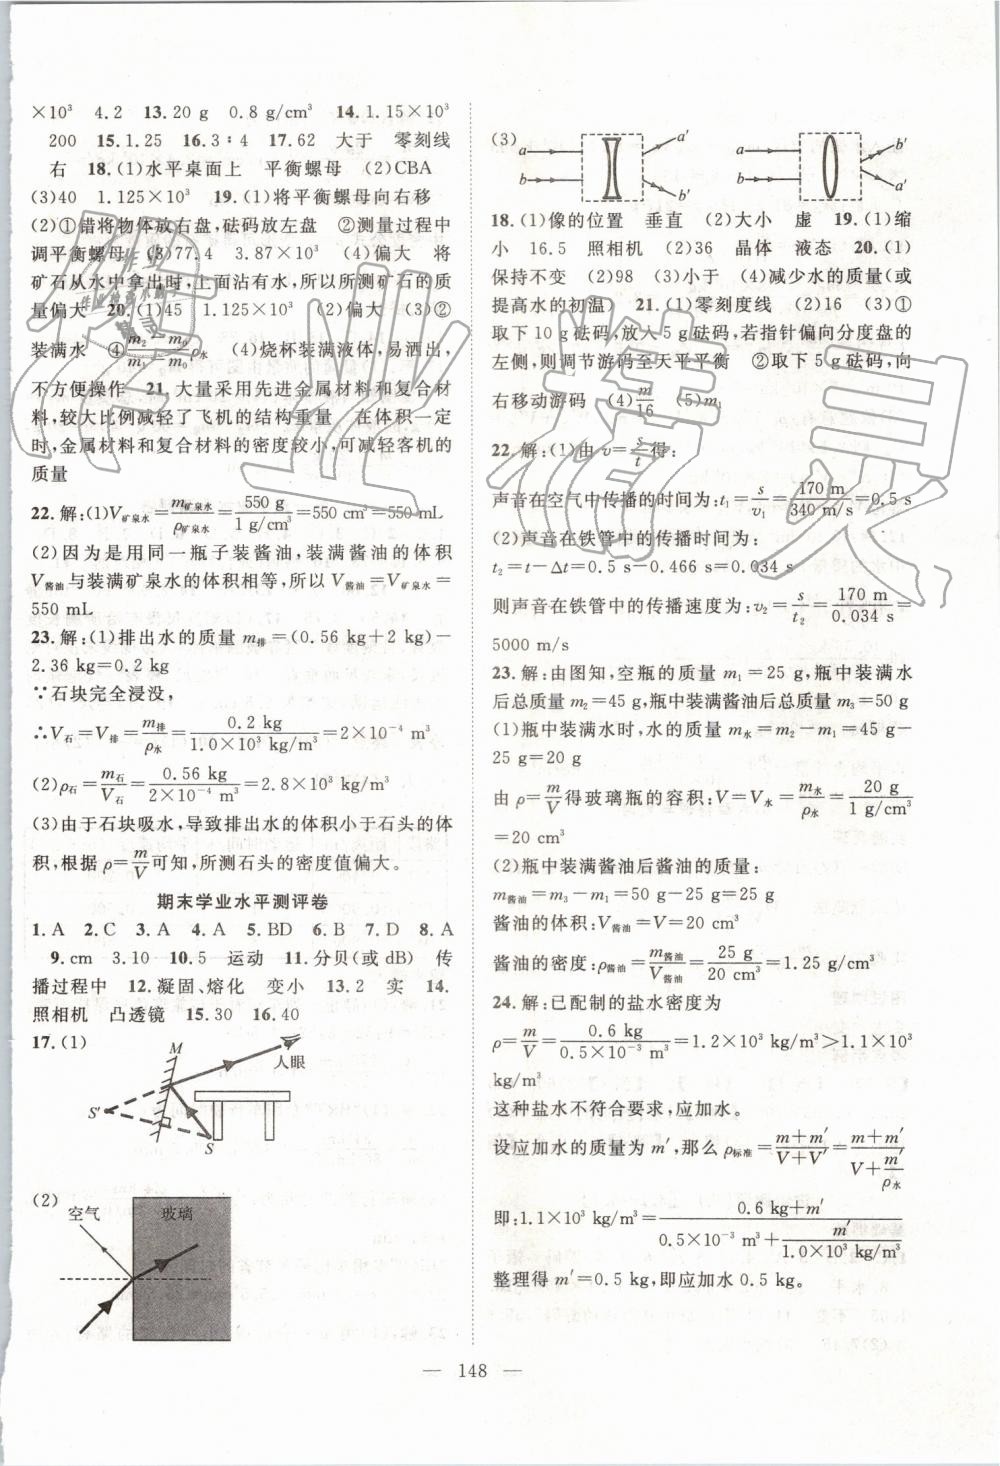 ×10³ 4.2 13.20 g 0.8 g/cm³ 14.1.15×10³
200 15.1.25 16.3∶4 17.62 大于 零刻线
右 18.(1)水平桌面上 平衡螺母 (2)CBA
(3)40 1.125×10³ 19.(1)将平衡螺母向右移
(2)①错将物体放右盘,砝码放左盘 ②测量过程中
调平衡螺母 (3)77.4 3.87×10³ (4)偏大 将
矿石从水中拿出时,上面沾有水,所以所测矿石的质
量偏大 20.(1)45 1.125×10³ (2)偏大 (3)②
装满水 ④(m₂－m₀)/(m₁－m₀)ρ水 (4)烧杯装满液体,易洒出,
不方便操作 21.大量采用先进金属材料和复合材
料,较大比例减轻了飞机的结构重量 在体积一定
时,金属材料和复合材料的密度较小,可减轻客机的
质量
22.解:(1)V矿泉水＝m矿泉水/ρ矿泉水＝550 g/1 g/cm³＝550 cm³＝550 mL
(2)因为是用同一瓶子装酱油,装满酱油的体积
V酱油与装满矿泉水的体积相等,所以V酱油＝V矿泉水＝
550 mL
23.解:(1)排出水的质量m排＝(0.56 kg＋2 kg)－
2.36 kg＝0.2 kg
∵石块完全浸没,
∴V石＝V排＝m排/ρ水＝0.2 kg/1.0×10³ kg/m³＝2×10⁻⁴ m³
(2)ρ石＝m石/V石＝0.56 kg/2×10⁻⁴ m³＝2.8×10³ kg/m³
(3)由于石块吸水,导致排出水的体积小于石头的体
积,根据ρ＝m/V可知,所测石头的密度值偏大。
期末学业水平测评卷
1.A 2.C 3.A 4.A 5.BD 6.B 7.D 8.A
9.cm 3.10 10.5 运动 11.分贝(或dB) 传
播过程中 12.凝固、熔化 变小 13.2 实 14.
照相机 凸透镜 15.30 16.40
17.(1)
M
人眼
S′
S
(2)
空气
玻璃
(3)
a
b
a′
b′
a
b
b′
a′
18.(1)像的位置 垂直 (2)大小 虚 19.(1)缩
小 16.5 照相机 (2)36 晶体 液态 20.(1)
保持不变 (2)98 (3)小于 (4)减少水的质量(或
提高水的初温) 21.(1)零刻度线 (2)16 (3)①
取下10 g砝码,放入5 g砝码,若指针偏向分度盘的
左侧,则调节游码至天平平衡 ②取下5 g砝码,向
右移动游码 (4)m/16 (5)m₁
22.解:(1)由v＝s/t得:
声音在空气中传播的时间为:t₁＝s/v₁＝170 m/340 m/s＝0.5 s
(2)声音在铁管中的传播时间为:
t₂＝t－Δt＝0.5 s－0.466 s＝0.034 s
则声音在铁管中的传播速度为:v₂＝s/t₂＝170 m/0.034 s＝
5000 m/s
23.解:由图知,空瓶的质量m₁＝25 g,瓶中装满水
后总质量m₂＝45 g,瓶中装满酱油后总质量m₃＝50 g
(1)瓶中装满水时,水的质量m水＝m₂－m₁＝45 g－
25 g＝20 g
由ρ＝m/V得玻璃瓶的容积:V＝V水＝m水/ρ水＝20 g/1 g/cm³
＝20 cm³
(2)瓶中装满酱油后酱油的质量:
m酱油＝m₃－m₁＝50 g－25 g＝25 g
酱油的体积:V酱油＝V＝20 cm³
酱油的密度:ρ酱油＝m酱油/V酱油＝25 g/20 cm³＝1.25 g/cm³
24.解:已配制的盐水密度为
ρ＝m/V＝0.6 kg/0.5×10⁻³ m³＝1.2×10³ kg/m³＞1.1×10³
kg/m³
这种盐水不符合要求,应加水。
设应加水的质量为m′,那么ρ标准＝(m＋m′)/(V＋V′)＝(m＋m′)/(V＋m′/ρ水)
即:1.1×10³ kg/m³＝(0.6 kg＋m′)/(0.5×10⁻³ m³＋m′/1.0×10³ kg/m³)
整理得m′＝0.5 kg,即应加水0.5 kg。
— 148 —